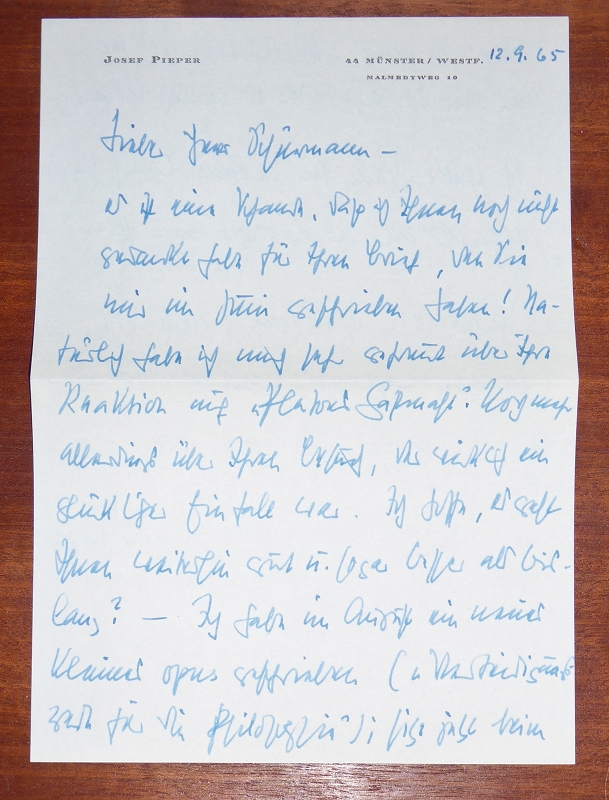 JOSEF PIEPER
44 MÜNSTER / WESTF. 12.9.65
MALMEDYWEG 10
Lieber Herr Schürmann –
es ist eine Schande, daß ich Ihnen noch nicht
gedankt habe für Ihren Brief, den Sie
mir im Juni geschrieben haben! Na-
türlich habe ich mich sehr gefreut über Ihre
Reaktion auf „Platons Gastmahl". Noch mehr
allerdings über Ihren Besuch, der wirklich ein
glücklicher Einfall war. Ich hoffe, es geht
Ihnen weiterhin gut u. sogar besser als bis-
lang? – Ich habe im August ein neues
kleines opus geschrieben („Verteidigungs-
rede für die Philosophie"); sitze jetzt beim